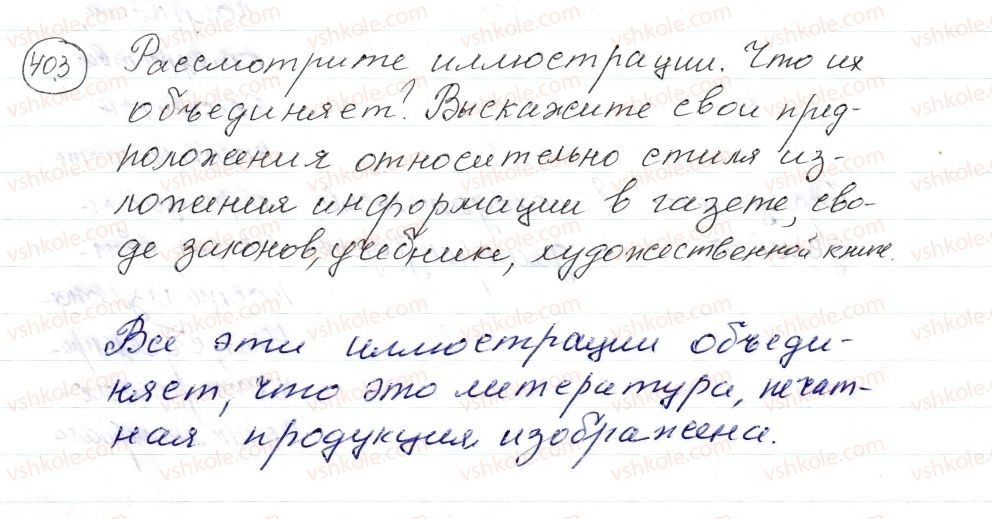 403 Рассмотрите иллюстрации. Что их
объединяет? Выскажите свои пред-
положения относительно стиля из-
ложения информации в газете, сво-
де законов, учебнике, художественной книге.
Все эти иллюстрации объеди-
няет, что это литература, печат-
ная продукция изображена.